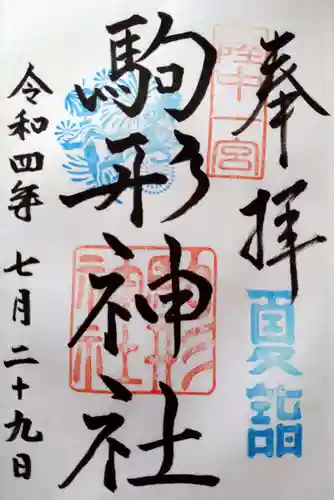 奉拝
陸中一宮
夏詣
駒形神社
駒形神社
令和四年七月二十九日